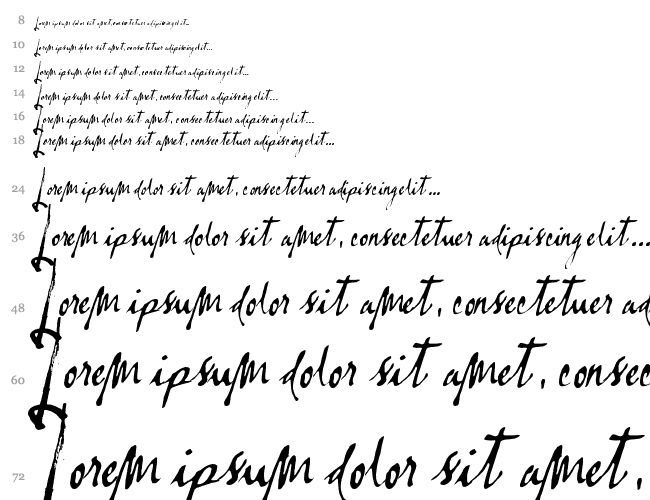 8 Lorem ipsum dolor sit amet, consectetuer adipiscing elit...
10 Lorem ipsum dolor sit amet, consectetuer adipiscing elit...
12 Lorem ipsum dolor sit amet, consectetuer adipiscing elit...
14 Lorem ipsum dolor sit amet, consectetuer adipiscing elit...
16 Lorem ipsum dolor sit amet, consectetuer adipiscing elit...
18 Lorem ipsum dolor sit amet, consectetuer adipiscing elit...
24 Lorem ipsum dolor sit amet, consectetuer adipiscing elit...
36 Lorem ipsum dolor sit amet, consectetuer adipiscing elit...
48 Lorem ipsum dolor sit amet, consectetuer ad
60 Lorem ipsum dolor sit amet, consec
72 Lorem ipsum dolor sit amet,